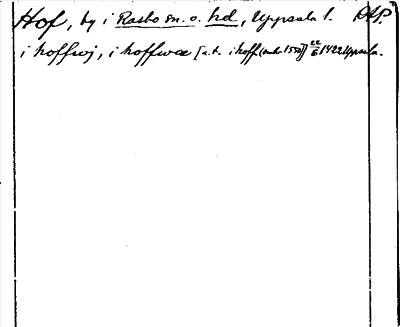 Hof, by i Rasbo sn. o. hd, Uppsala l. DAP.
i hoffwj, i hoffwæ [a.t. i hoff (omkr 1550)] 22/6 1422 Uppsala.